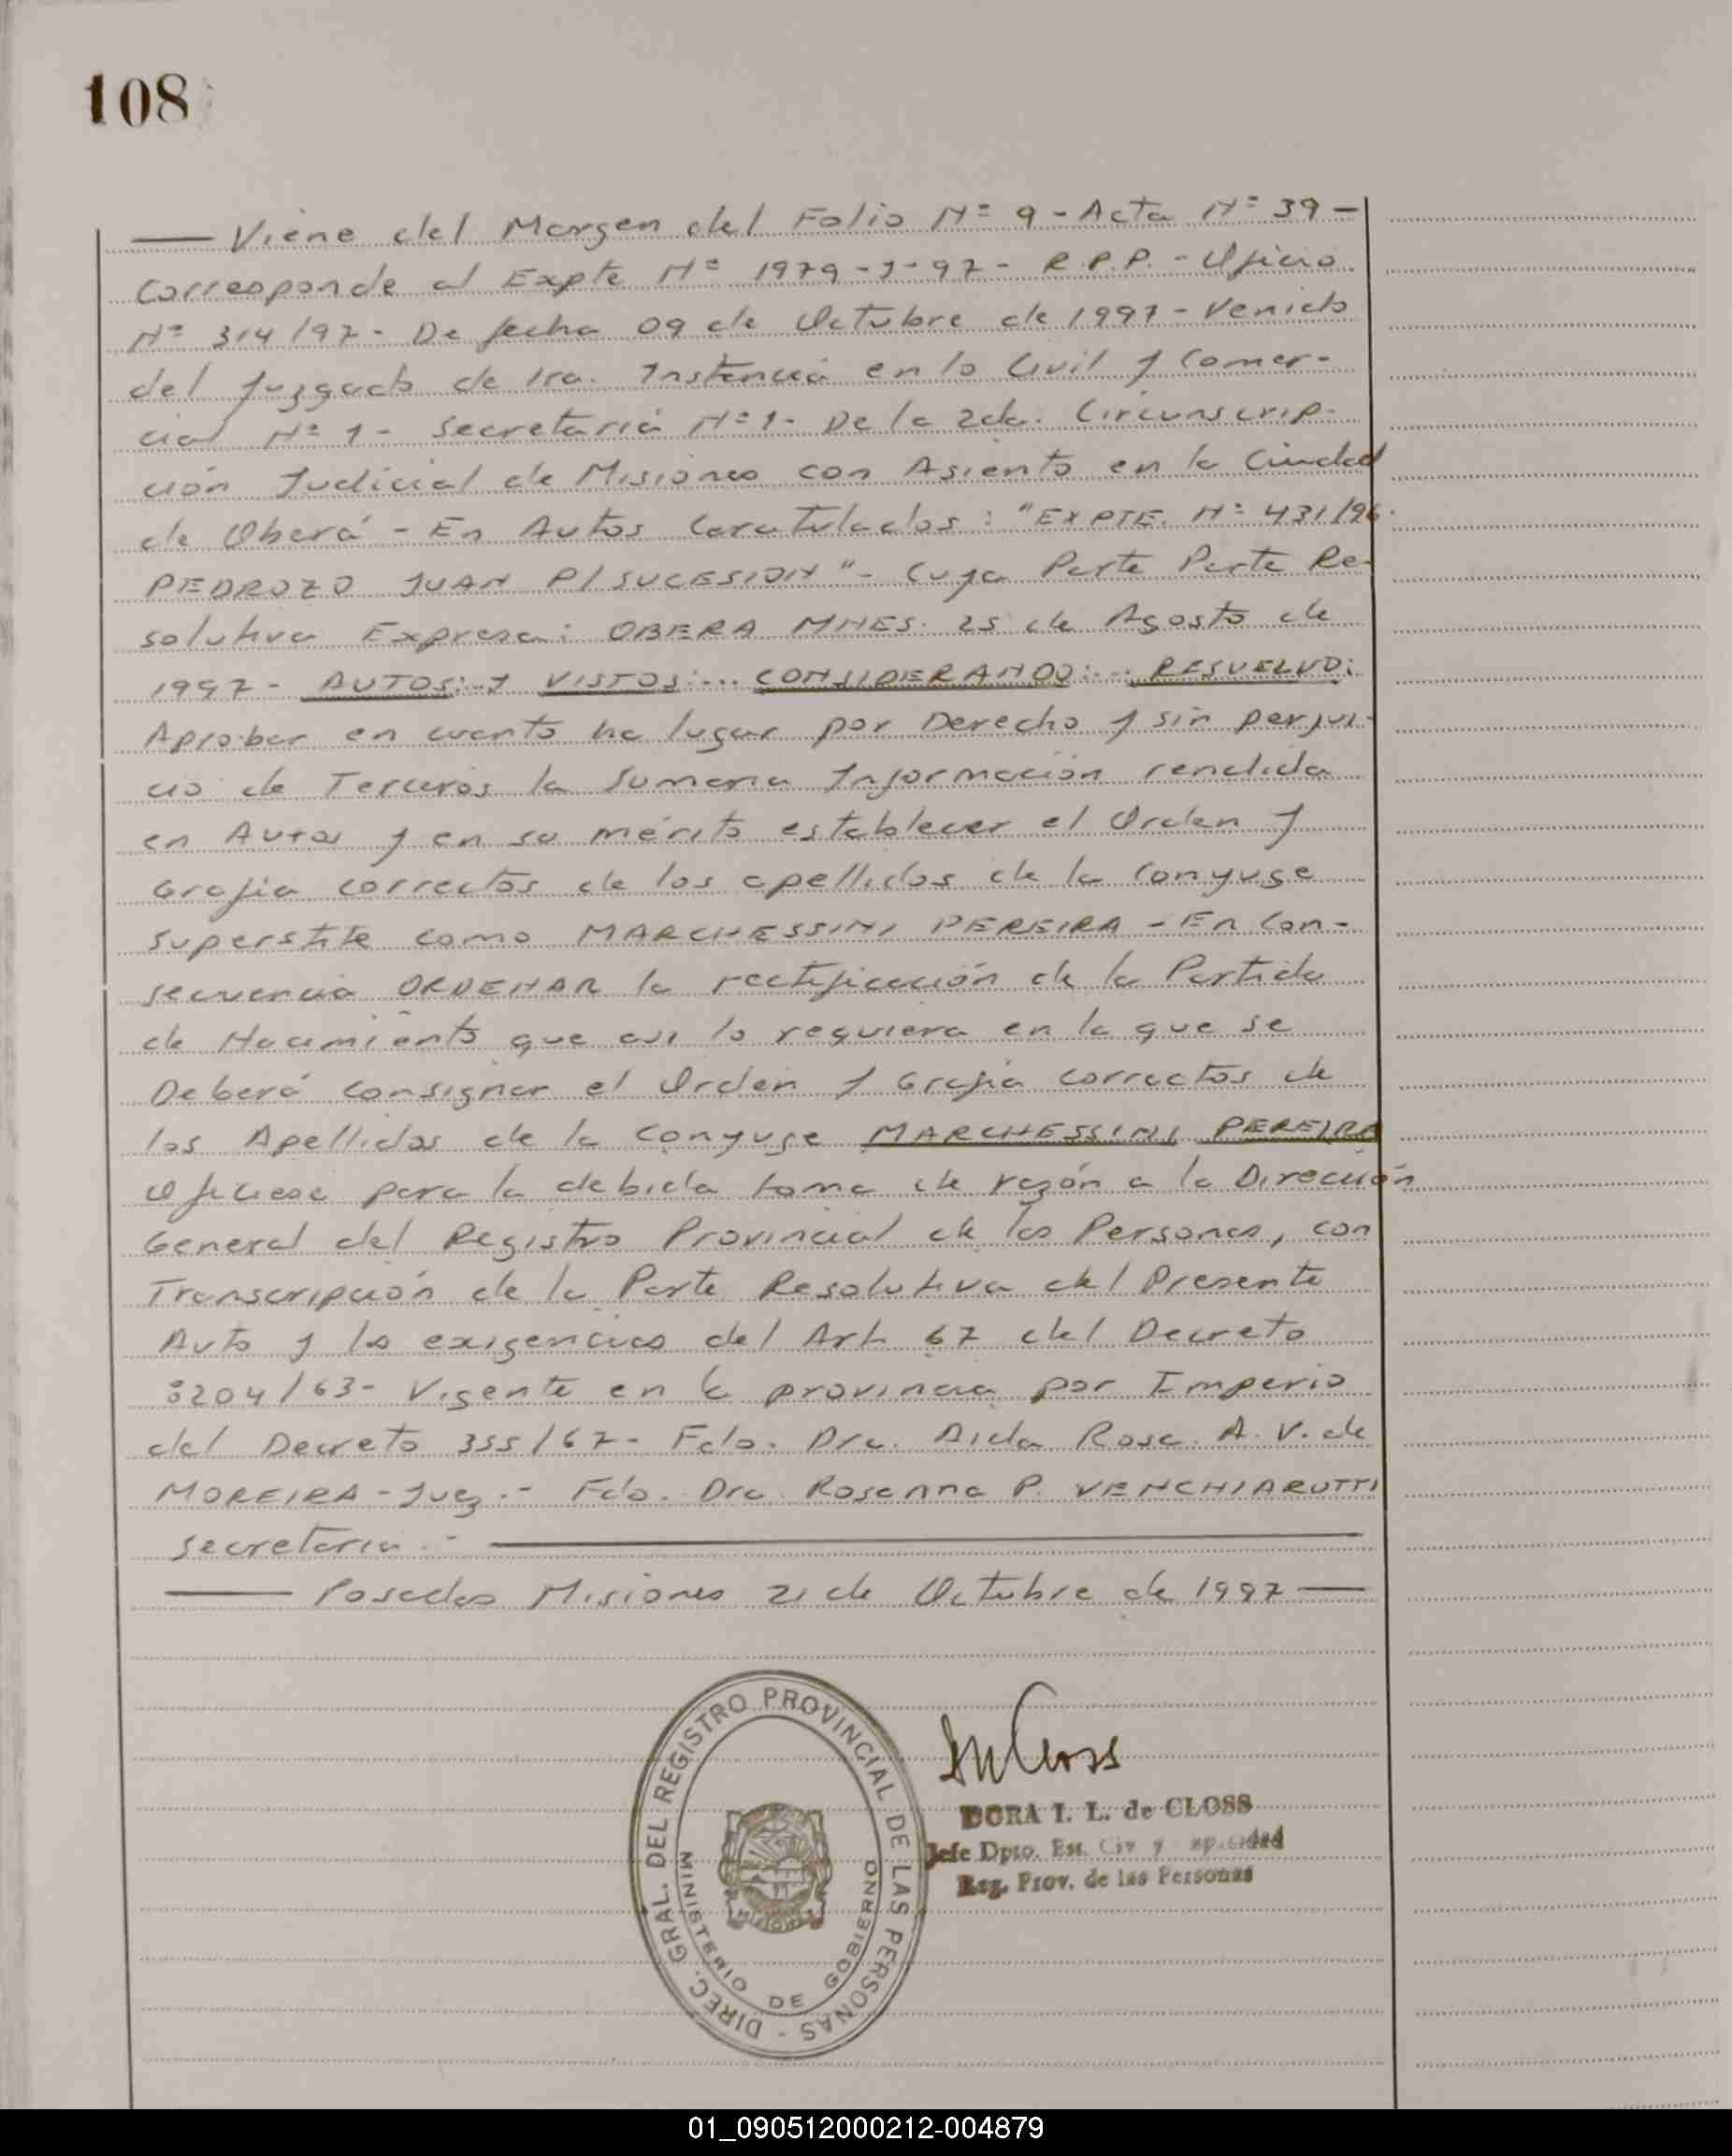 108
— Viene del Margen del Folio Nº 9 - Acta Nº 39 -
Corresponde al Expte Nº 1979-J-97- R.P.P. - Oficio
Nº 314/97- De fecha 09 de Octubre de 1997 - Venido
del Juzgado de 1ra. Instancia en lo Civil y Comer-
cial Nº 1 - Secretaría Nº 1- De la 2da. Circunscrip-
ción Judicial de Misiones con Asiento en la Ciudad
de Oberá - En Autos Caratulados: "EXPTE. Nº 431/96-
PEDROZO JUAN P/SUCESION"- Cuya Parte Parte Re-
solutiva Expresa: OBERA MNES. 25 de Agosto de
1997- AUTOS: Y VISTOS:... CONSIDERANDO:... RESUELVO:
Aprobar en cuanto ha lugar por Derecho y sin perjui-
cio de Terceros la Sumaria Información rendida
en Autos y en su mérito establecer el Orden y
Grafia correctos de los apellidos de la Conyuge
Superstite como MARCHESSINI PEREIRA - En Con-
secuencia ORDENAR la rectificación de la Partida
de Nacimiento que asi lo requiera en la que se
Deberá consignar el Orden y Grafia correctos de
los Apellidos de la Conyuge MARCHESSINI PEREIRA
Ofíciese para la debida toma de razón a la Dirección
General del Registro Provincial de las Personas, con
Transcripción de la Parte Resolutiva del Presente
Auto y las exigencias del Art. 67 del Decreto
8204/63- Vigente en la provincia por Imperio
del Decreto 355/67- Fdo. Dra. Aida Rosa A. V. de
MOREIRA - Juez.- Fdo. Dra. Rosanna P. VENCHIARUTTI
Secretaria.-
— Posadas Misiones 21 de Octubre de 1997 —
DIREC. GRAL. DEL REGISTRO PROVINCIAL DE LAS PERSONAS -
MINISTERIO DE GOBIERNO
DORA I. L. de CLOSS
Jefe Dpto. Est. Civ y
Reg. Prov. de las Personas
01_090512000212-004879